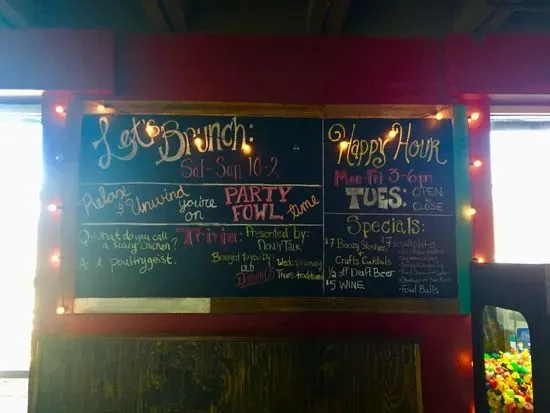 Let's Brunch:
Sat-Sun 10-2
Relax & Unwind you're on PARTY FOWL time
Q: what do you call a scary chicken?
A: A poultrygeist.
Trivia: Presented by: Nerdy Talk
Brought to you by: OLD
Weds:
Thurs: traditional
Happy Hour
Mon-Fri 3-6pm
TUES: OPEN to CLOSE
Specials:
$7 Boozy Slushies
Crafts Cocktails
½ off Draft Beer
$5 WINE
$7 small plates
Fowl Balls